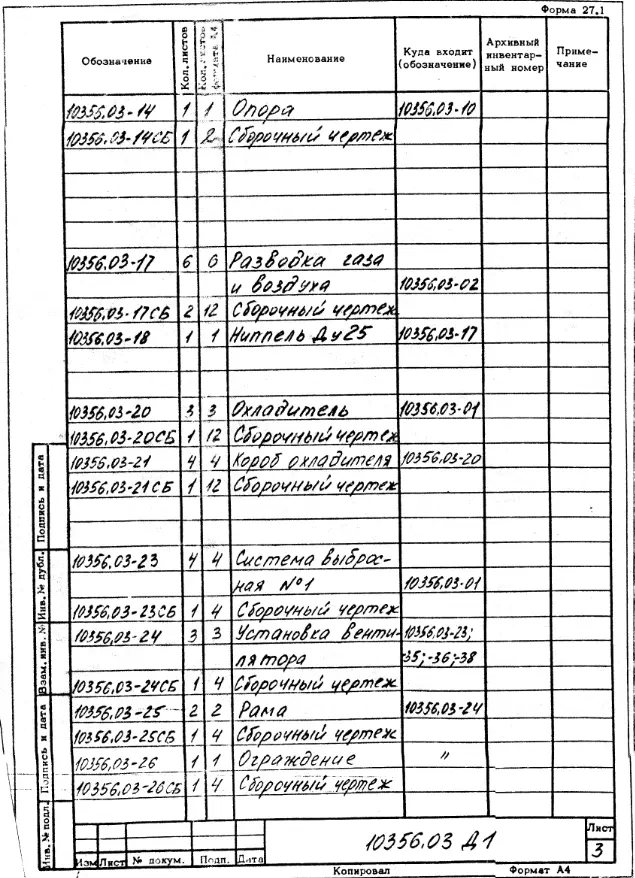 Форма 27.1
Обозначение Кол. листов Кол. листов формата А4 Наименование Куда входит (обозначение) Архивный инвентарный номер Примечание
10356.03-14 1 1 Опора 10356.03-10
10356.03-14СБ 1 2 Сборочный чертеж
10356.03-17 6 6 Разводка газа
и воздуха 10356.03-02
10356.03-17СБ 2 12 Сборочный чертеж
10356.03-18 1 1 Ниппель Ду25 10356.03-17
10356.03-20 3 3 Охладитель 10356.03-01
10356.03-20СБ 1 12 Сборочный чертеж
10356.03-21 4 4 Короб охладителя 10356.03-20
10356.03-21СБ 1 12 Сборочный чертеж
10356.03-23 4 4 Система выброс-
ная №1 10356.03-01
10356.03-23СБ 1 4 Сборочный чертеж
10356.03-24 3 3 Установка венти- 10356.03-23;
лятора -35;-36;-38
10356.03-24СБ 1 4 Сборочный чертеж
10356.03-25 2 2 Рама 10356.03-24
10356.03-25СБ 1 4 Сборочный чертеж
10356.03-26 1 1 Ограждение "
10356.03-26СБ 1 4 Сборочный чертеж
Подпись и дата
Инв. № дубл.
Взам. инв. №
Подпись и дата
Инв. № подл.
10356.03 Д1
Лист
3
Изм Лист № докум. Подп. Дата
Копировал Формат А4